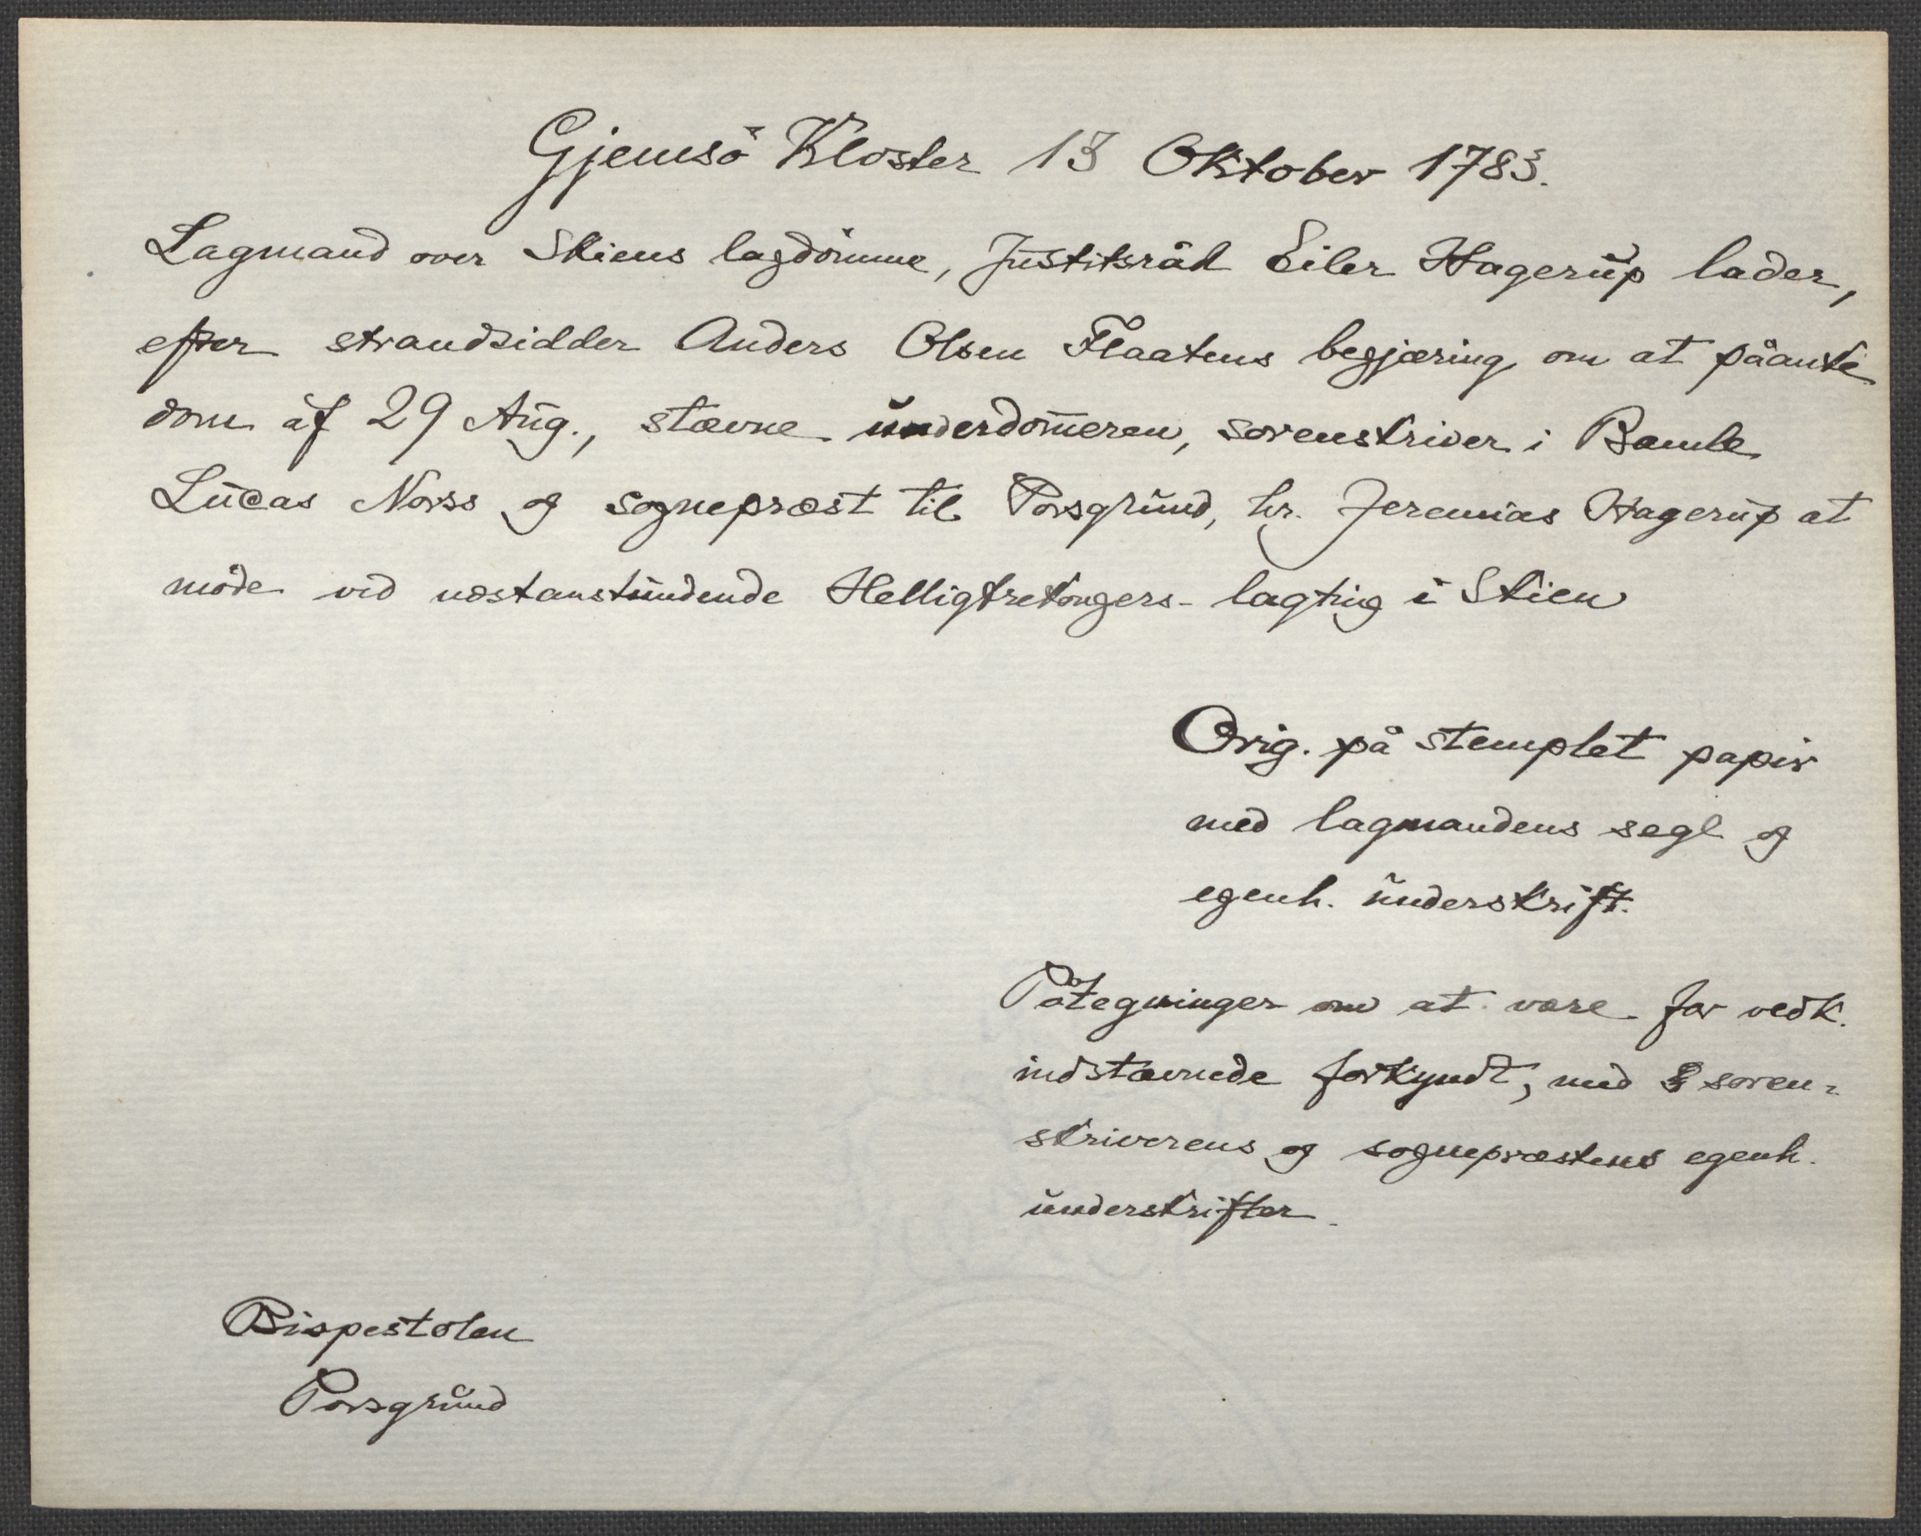 Gjemsö Kloster 13 Oktober 1783.
Lagmand over Skiens lagdömme, Justitsråd Eiler Hagerup lader,
efter strandsidder Anders Olsen Flaatens begjæring om at påanke
dom af 29 Aug., stævne underdom̅eren, sorenskriver i Bamle
Lucas Norss og sognepræst til Porsgrund, hr. Jeremias Hagerup at
möde ved næstanstundende Helligtrekongers- lagting i Skien
Orig. på stemplet papir
med lagmandens segl og
egenh. underskrift.
Påtegninger om at være for vedk.
indstævnede forkyndt, med soren-
skriverens og sognepræstens egenh.
underskrifter.
Bispestolen
Porsgrund